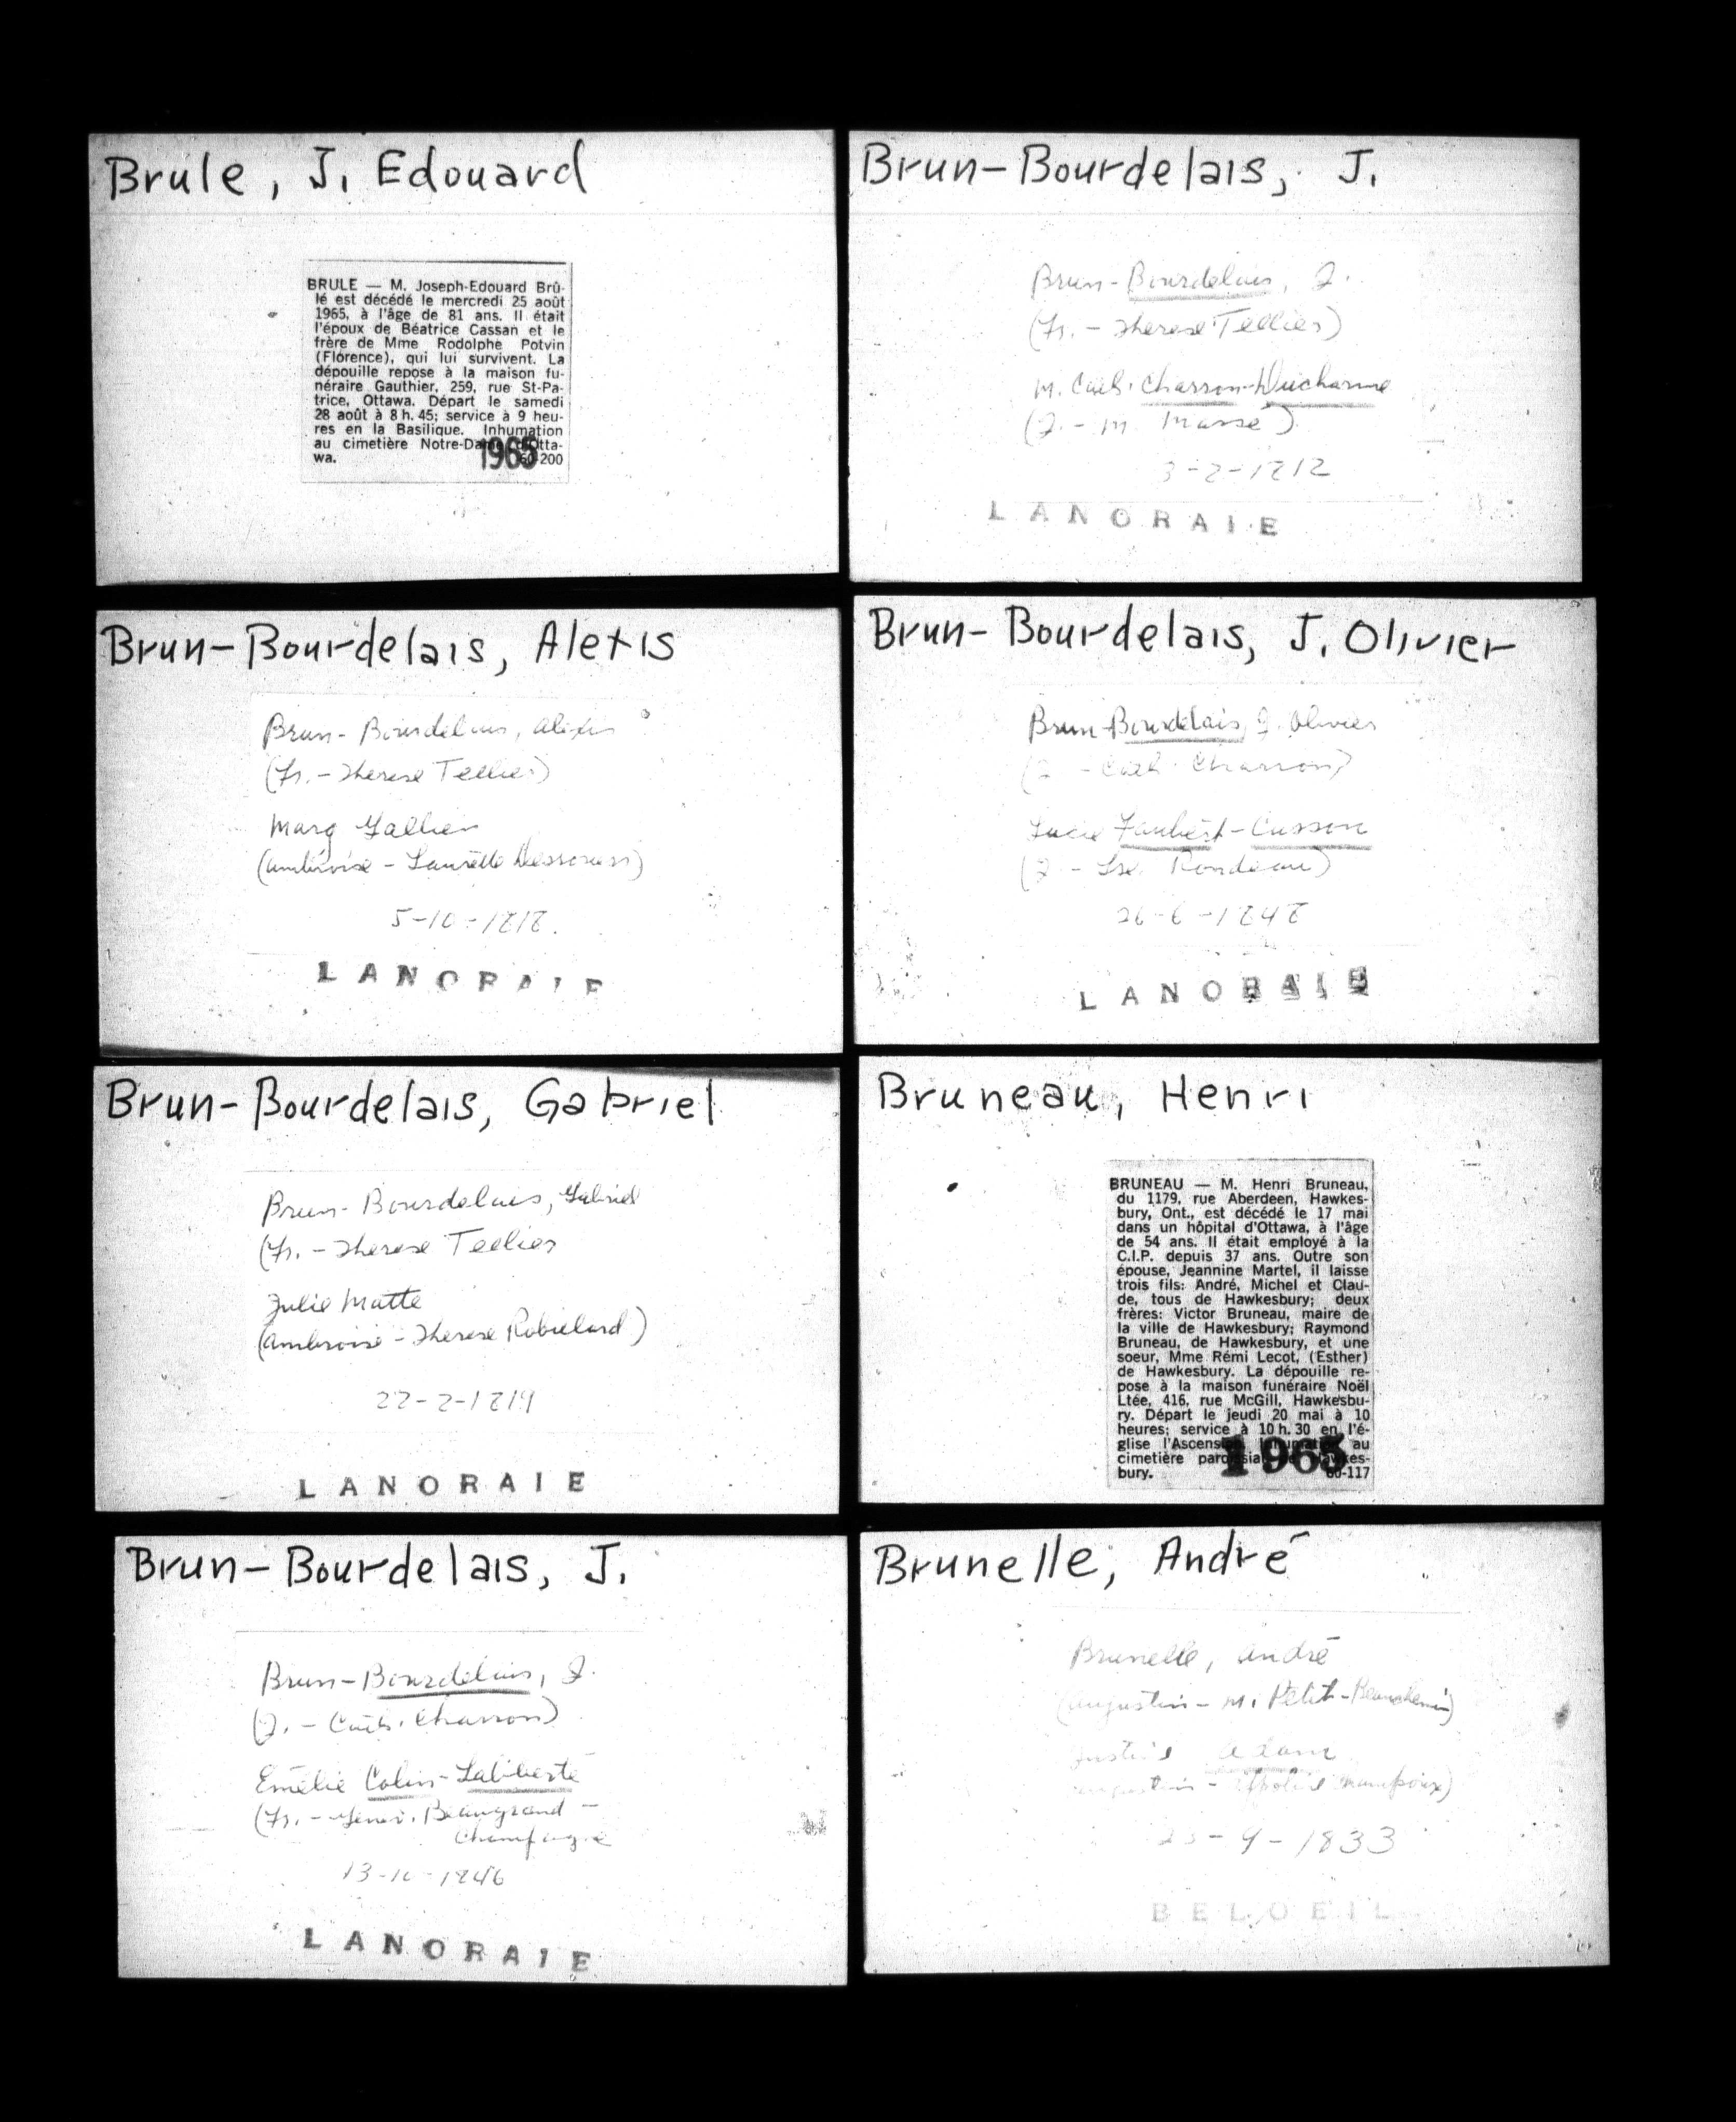 Brule, J. Edouard
BRULE — M. Joseph-Edouard Brû-
lé est décédé le mercredi 25 août
1965, à l'âge de 81 ans. Il était
l'époux de Béatrice Cassan et le
frère de Mme Rodolphe Potvin
(Florence), qui lui survivent. La
dépouille repose à la maison fu-
néraire Gauthier, 259, rue St-Pa-
trice, Ottawa. Départ le samedi
28 août à 8 h. 45; service à 9 heu-
res en la Basilique. Inhumation
au cimetière Notre-Dame d'Otta-
wa. 60-200
1965
Brun-Bourdelais, Alexis
Brun-Bourdelais, Alexis
(Fr. - Therese Tellier)
Marg Gallien
(Ambroise - Laurette Dessoucis)
5-10-1818.
LANORAIE
Brun-Bourdelais, Gabriel
Brun-Bourdelais, Gabriel
(Fr. - Therese Tellier
Julie Matte
(Ambroise - Therese Robillard)
22-2-1819
LANORAIE
Brun-Bourdelais, J.
Brun-Bourdelais, J.
(J. - Cath. Charron)
Emelie Colin-Laliberté
(Fr. - Genev. Beaugrand -
Champagne
13-10-1846
LANORAIE
Brun-Bourdelais, J.
Brun-Bourdelais, J.
(Fr. - Therese Tellier)
M. Cath. Charron-Ducharme
(J. - M. Massé)
3-2-1812
LANORAIE
Brun-Bourdelais, J. Olivier
Brun-Bourdelais, J. Olivier
(J - Cath. Charron)
Lucie Faubert-Cusson
(J - Ise. Rondeau)
26-6-1848
LANORAIE
Bruneau, Henri
BRUNEAU — M. Henri Bruneau,
du 1179, rue Aberdeen, Hawkes-
bury, Ont., est décédé le 17 mai
dans un hôpital d'Ottawa, à l'âge
de 54 ans. Il était employé à la
C.I.P. depuis 37 ans. Outre son
épouse, Jeannine Martel, il laisse
trois fils: André, Michel et Clau-
de, tous de Hawkesbury; deux
frères: Victor Bruneau, maire de
la ville de Hawkesbury; Raymond
Bruneau, de Hawkesbury, et une
soeur, Mme Rémi Lecot, (Esther)
de Hawkesbury. La dépouille re-
pose à la maison funéraire Noël
Ltée, 416, rue McGill, Hawkesbu-
ry. Départ le jeudi 20 mai à 10
heures; service à 10 h. 30 en l'é-
glise l'Ascension. Inhumation au
cimetière paroissial de Hawkes-
bury. 60-117
1965
Brunelle, André
Brunelle, André
(Augustin - M. Petit-Beauchemin)
Adam
(Augustin -
9-1833
BELOEIL